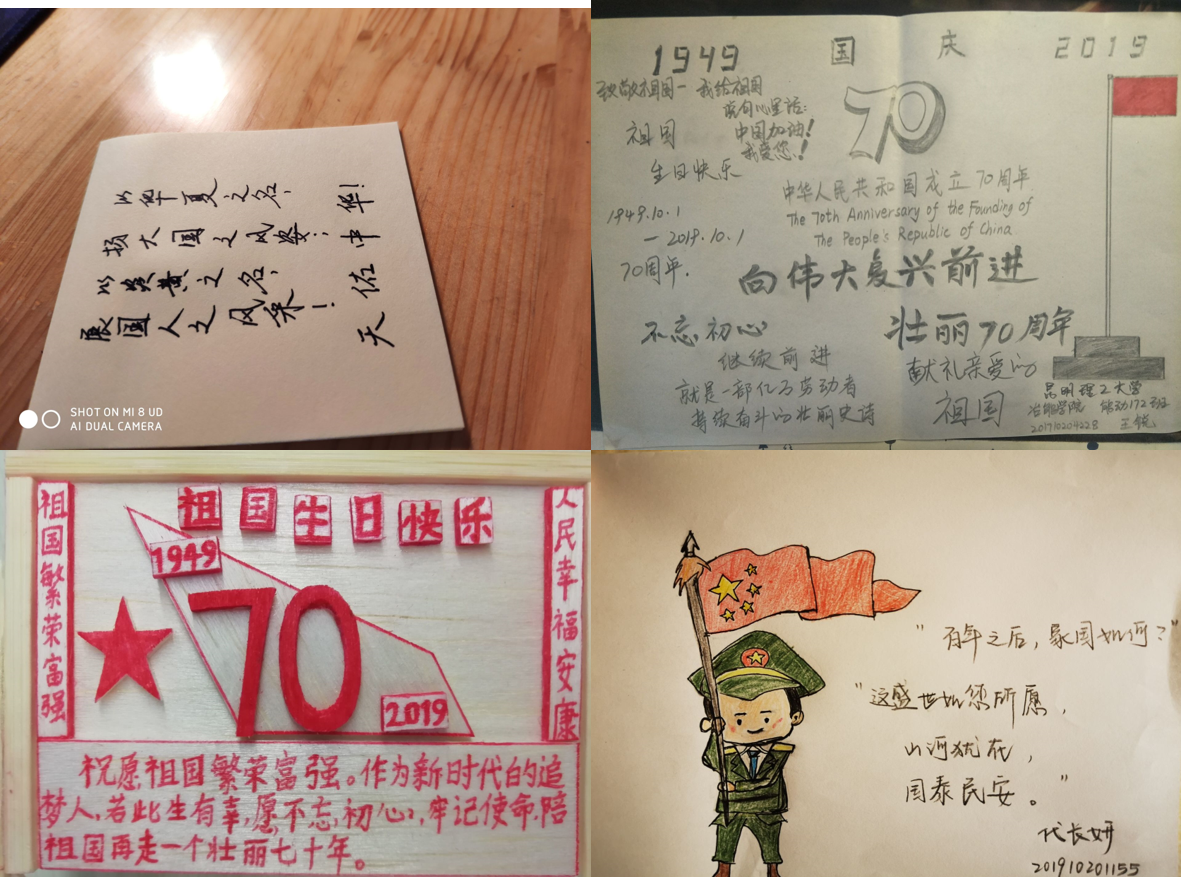 以华夏之名，
扬大国之风姿；
以炎黄之名，
展国人之风采！
天佑中华！
SHOT ON MI 8 UD
AI DUAL CAMERA
1949 国庆 2019
致敬祖国一我给祖国
说句心里话:
中国加油!
我爱您!
祖国
生日快乐
1949.10.1
—2019.10.1
70周年.
70
中华人民共和国成立70周年
The 70th Anniversary of the Founding of
The People's Republic of China
向伟大复兴前进
不忘初心
继续前进
就是一部亿万劳动者
持续奋斗的壮丽史诗
壮丽70周年
献礼亲爱的
祖国
昆明理工大学
冶能学院 能动172班
201710204228 王锐
祖国生日快乐
祖国繁荣富强
人民幸福安康
1949
70
2019
祝愿祖国繁荣富强。作为新时代的追
梦人,若此生有幸,愿不忘初心,牢记使命,陪
祖国再走一个壮丽七十年。
"百年之后，家国如何？"
"这盛世如您所愿，
山河犹在，
国泰民安。"
代长妍
201910201155